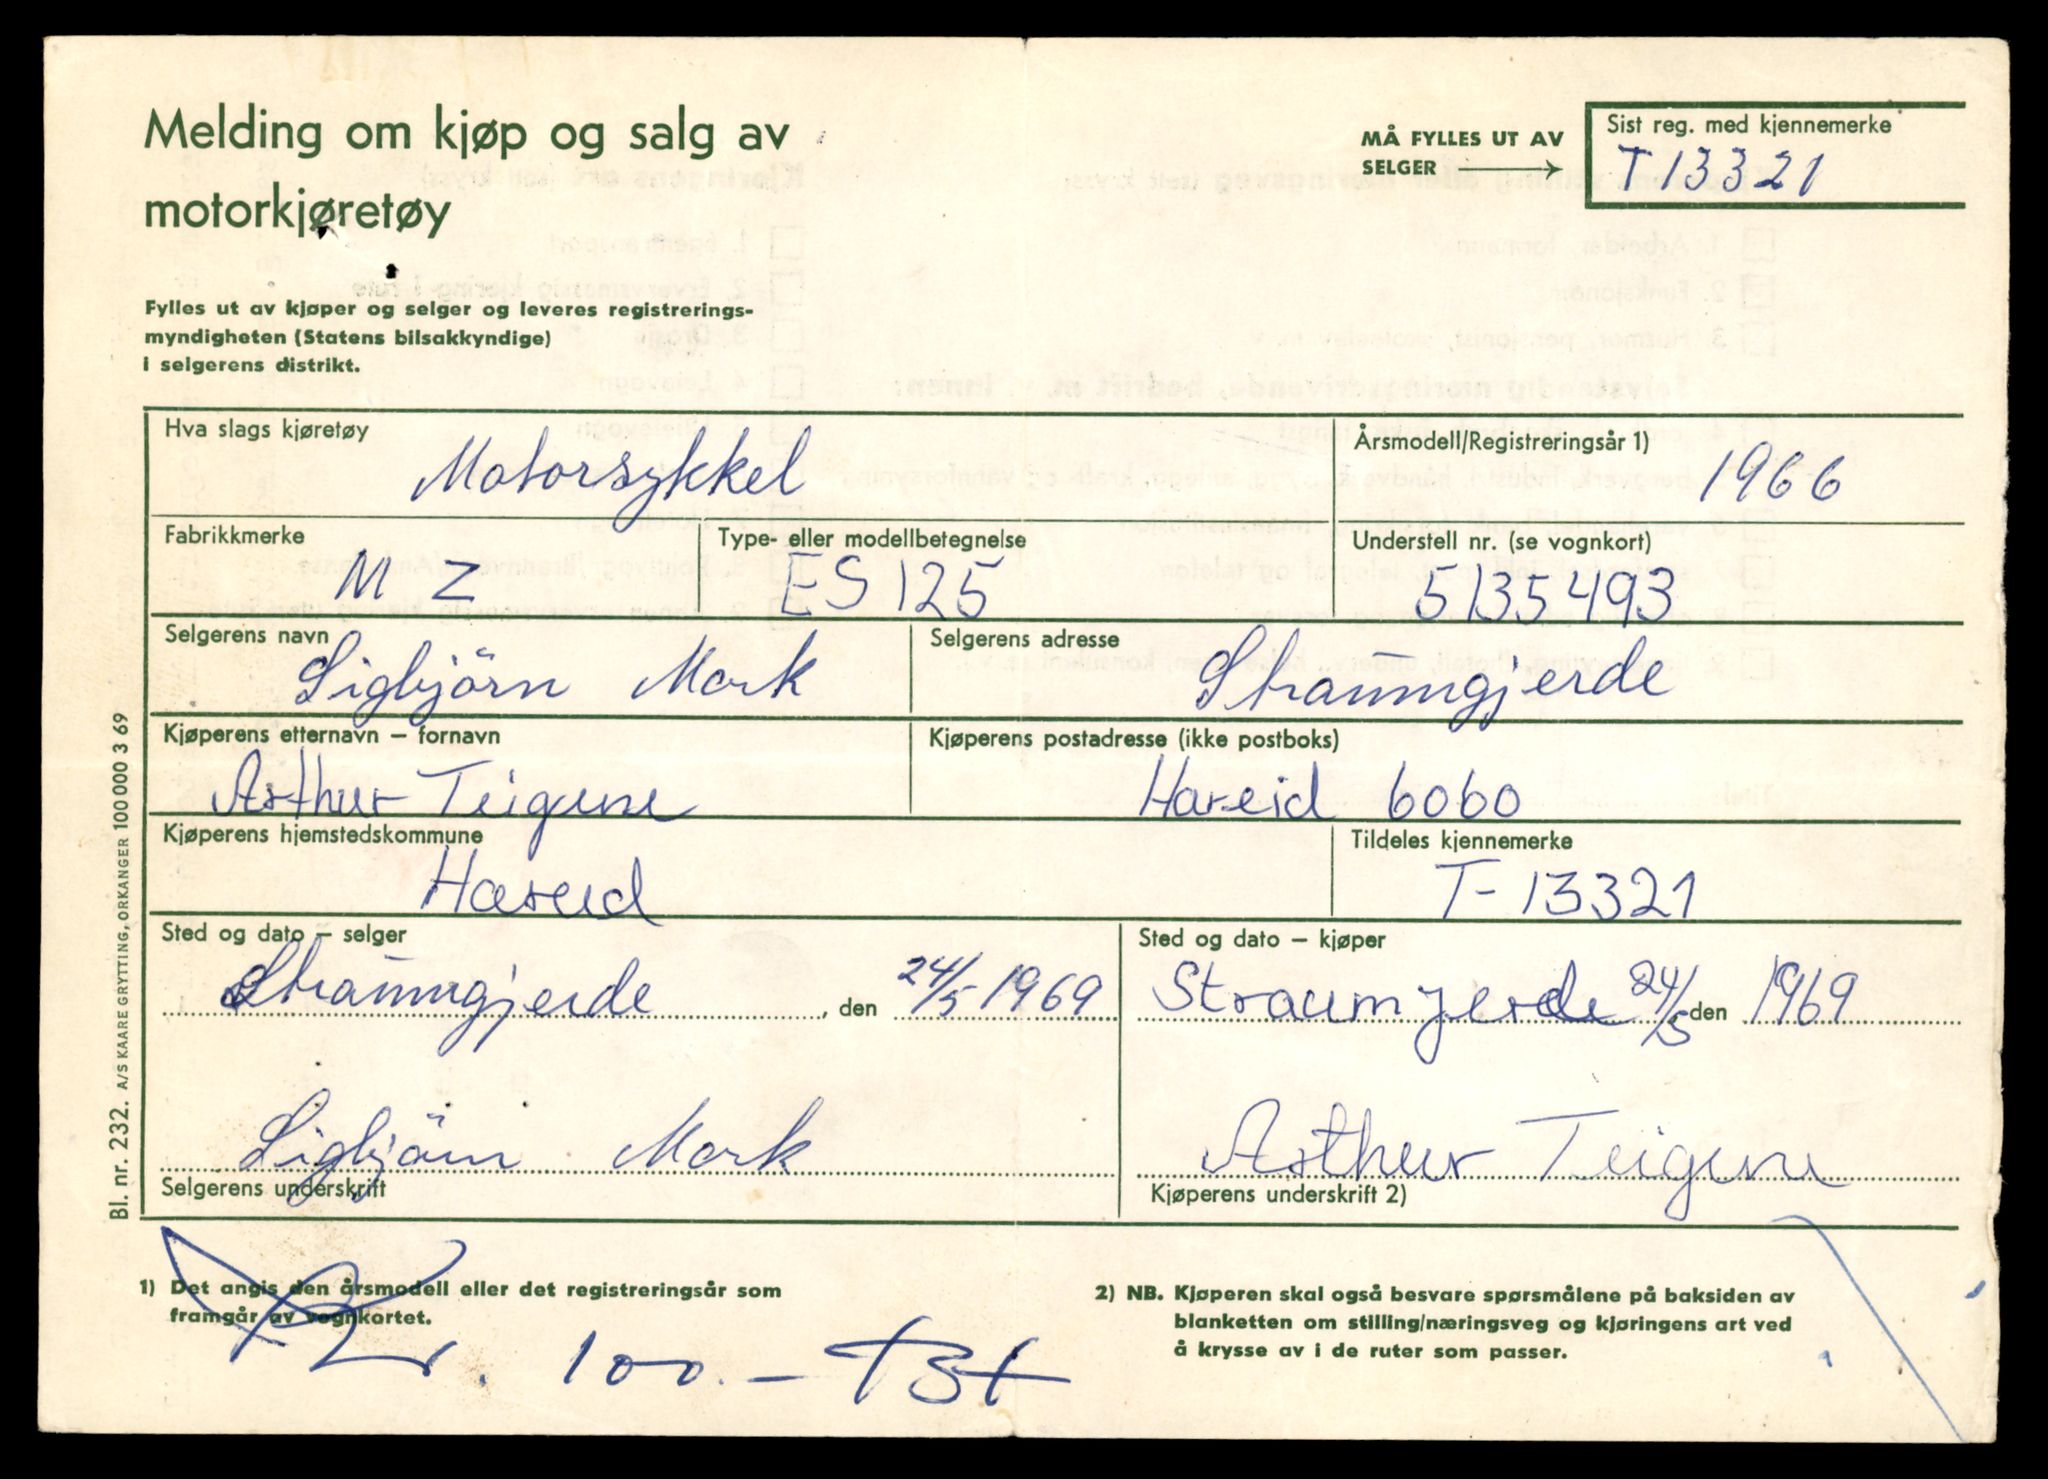 Melding om kjøp og salg av
motorkjøretøy
MÅ FYLLES UT AV
SELGER
Sist reg. med kjennemerke
T 13321
Fylles ut av kjøper og selger og leveres registrerings-
myndigheten (Statens bilsakkyndige)
i selgerens distrikt.
Hva slags kjøretøy
Motorsykkel
Årsmodell/Registreringsår 1)
1966
Fabrikkmerke
MZ
Type- eller modellbetegnelse
ES 125
Understell nr. (se vognkort)
5135493
Selgerens navn
Sigbjörn Mork
Selgerens adresse
Straumgjerde
Kjøperens etternavn – fornavn
Arthur Teigene
Kjøperens postadresse (ikke postboks)
Hareid 6060
Kjøperens hjemstedskommune
Hareid
Tildeles kjennemerke
T-13321
Sted og dato – selger
Straumgjerde, den 24/5 1969
Sted og dato – kjøper
Straumjerde 24/5, den 1969
Sigbjörn Mork
Selgerens underskrift
Arthur Teigene
Kjøperens underskrift 2)
1) Det angis den årsmodell eller det registreringsår som
framgår av vognkortet.
2) NB. Kjøperen skal også besvare spørsmålene på baksiden av
blanketten om stilling/næringsveg og kjøringens art ved
å krysse av i de ruter som passer.
Kr. 100.-
Bl. nr. 232. A/S KAARE GRYTTING, ORKANGER 100 000 3 69